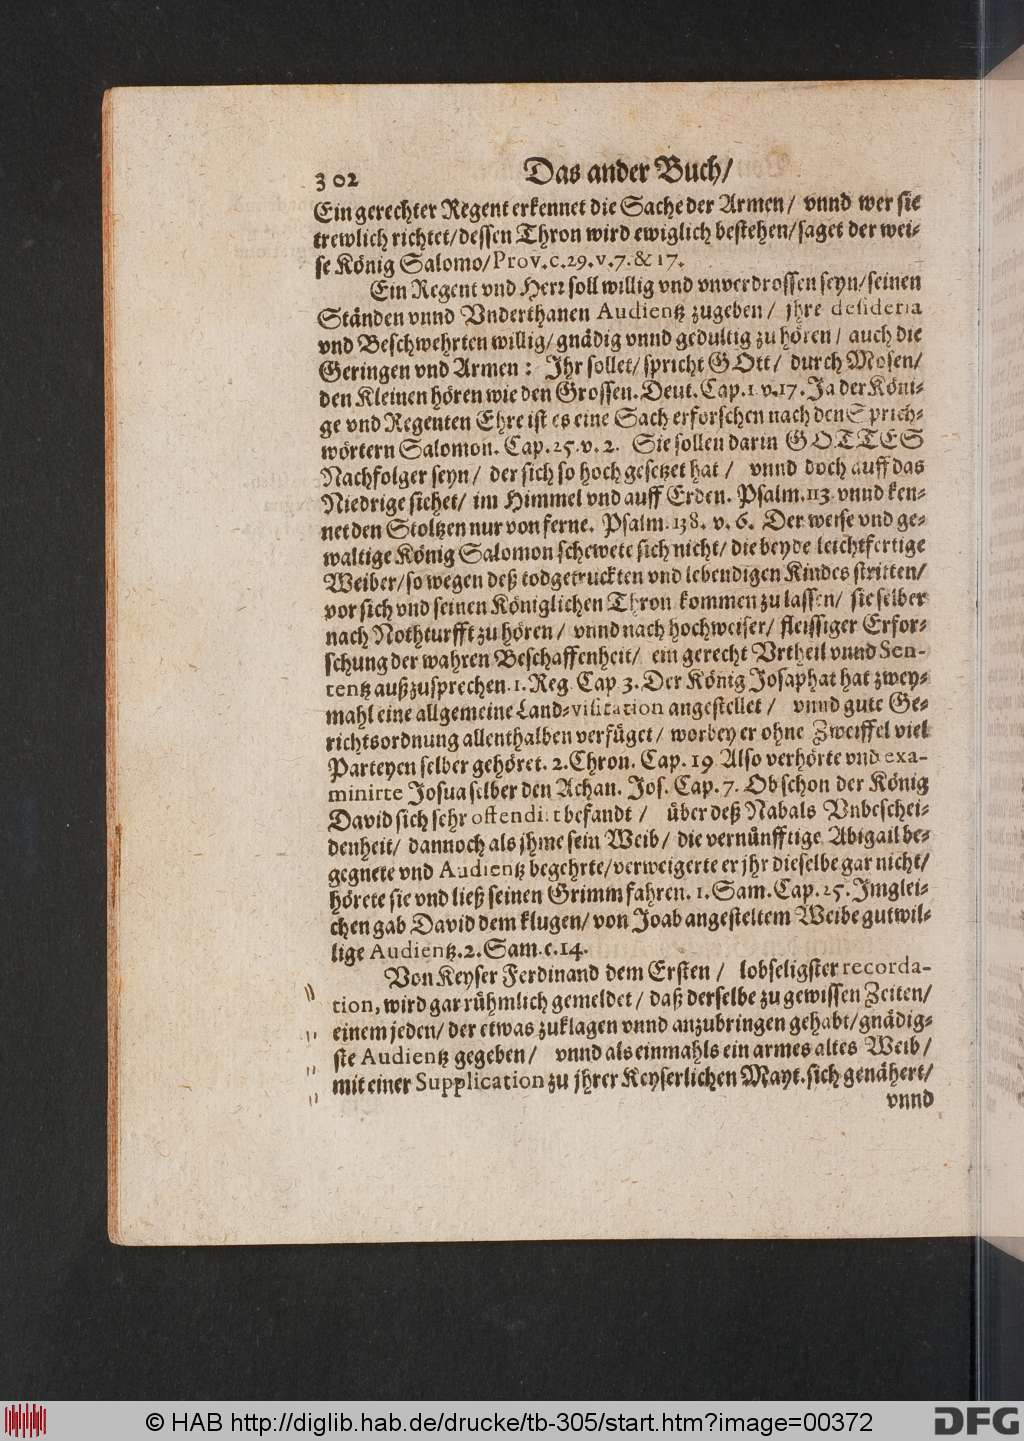 302 Das ander Buch/
Ein gerechter Regent erkennet die Sache der Armen/ vnnd wer sie
trewlich richtet/dessen Thron wird ewiglich bestehen/saget der wei-
se König Salomo/Prov.c.29.v.7.&17.
Ein Regent vnd Herr soll willig vnd vnverdrossen seyn/seinen
Ständen vnnd Vnderthanen Audientz zugeben/ jhre desideria
vnd Beschwehrten willig/gnädig vnnd gedultig zu hören/ auch die
Geringen vnd Armen: Jhr sollet/spricht GOtt/ durch Mosen/
den Kleinen hören wie den Grossen. Deut. Cap.1 v.17. Ja der Köni-
ge vnd Regenten Ehre ist es eine Sach erforschen nach den Sprich-
wörtern Salomon. Cap.25.v.2. Sie sollen darin GOTTES
Nachfolger seyn/ der sich so hoch gesetzet hat/ vnnd doch auff das
Niedrige siehet/ im Himmel vnd auff Erden. Psalm.113 vnnd ken-
net den Stoltzen nur von ferne. Psalm.138. v.6. Der weise vnd ge-
waltige König Salomon schewete sich nicht/ die beyde leichtfertige
Weiber/so wegen deß todgetruckten vnd lebendigen Kindes stritten/
vor sich vnd seinen Königlichen Thron kommen zu lassen/ sie selber
nach Nothturfft zu hören/ vnnd nach hochweiser/ fleissiger Erfor-
schung der wahren Beschaffenheit/ ein gerecht Vrtheil vnnd Sen-
tentz außzusprechen.1.Reg.Cap 3. Der König Josaphat hat zwey-
mahl eine allgemeine Land-visitation angestellet/ vnnd gute Ge-
richtsordnung allenthalben verfüget/ worbey er ohne Zweiffel viel
Parteyen selber gehöret. 2.Chron. Cap. 19 Also verhörte vnd exa-
minirte Josua selber den Achan. Jos. Cap.7. Ob schon der König
David sich sehr offendirt befandt/ über deß Nabals Vnbeschei-
denheit/ dannoch als jhme sein Weib/ die vernünfftige Abigail be-
gegnete vnd Audientz begehrte/verweigerte er jhr dieselbe gar nicht/
hörete sie vnd ließ seinen Grimm fahren. 1.Sam.Cap.25. Jmglei-
chen gab David dem klugen/ von Joab angesteltem Weibe gutwil-
lige Audientz.2.Sam.c.14.
Von Keyser Ferdinand dem Ersten/ lobseligster recorda-
tion, wird gar rühmlich gemeldet/ daß derselbe zu gewissen Zeiten/
einem jeden/ der etwas zuklagen vnnd anzubringen gehabt/gnädig-
ste Audientz gegeben/ vnnd als einmahls ein armes altes Weib/
mit einer Supplication zu jhrer Keyserlichen Mayt. sich genähert/
vnnd
© HAB http://diglib.hab.de/drucke/tb-305/start.htm?image=00372
DFG